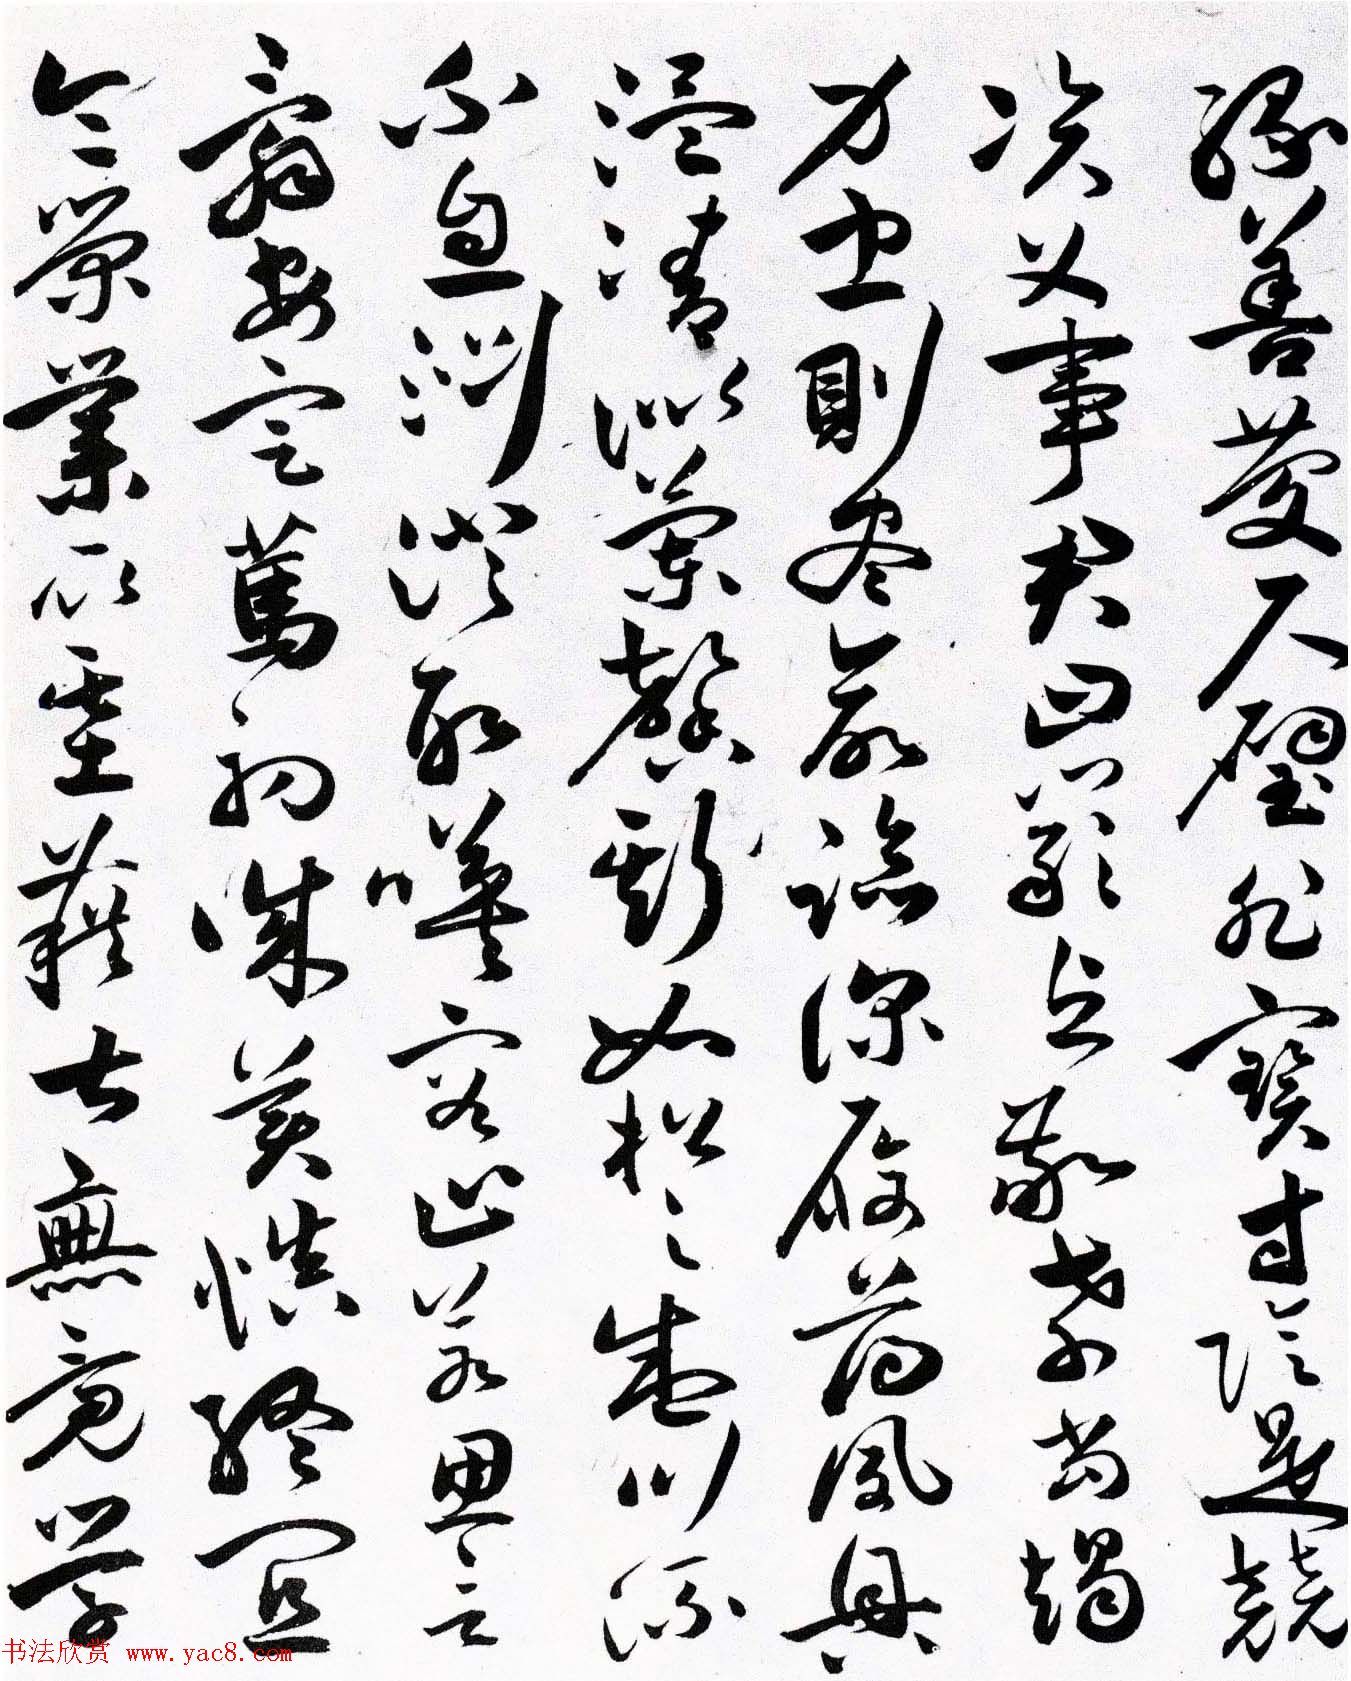 緣善慶尺璧非寶寸陰是競
資父事君曰嚴與敬孝當竭
力忠則盡命臨深履薄夙興
溫清似蘭馨斯如松之盛川流
不息淵澄取暎容止若思言
辭安定篤初誠美慎終宜
令榮業所基藉甚無竟學
书法欣赏 www.yac8.com